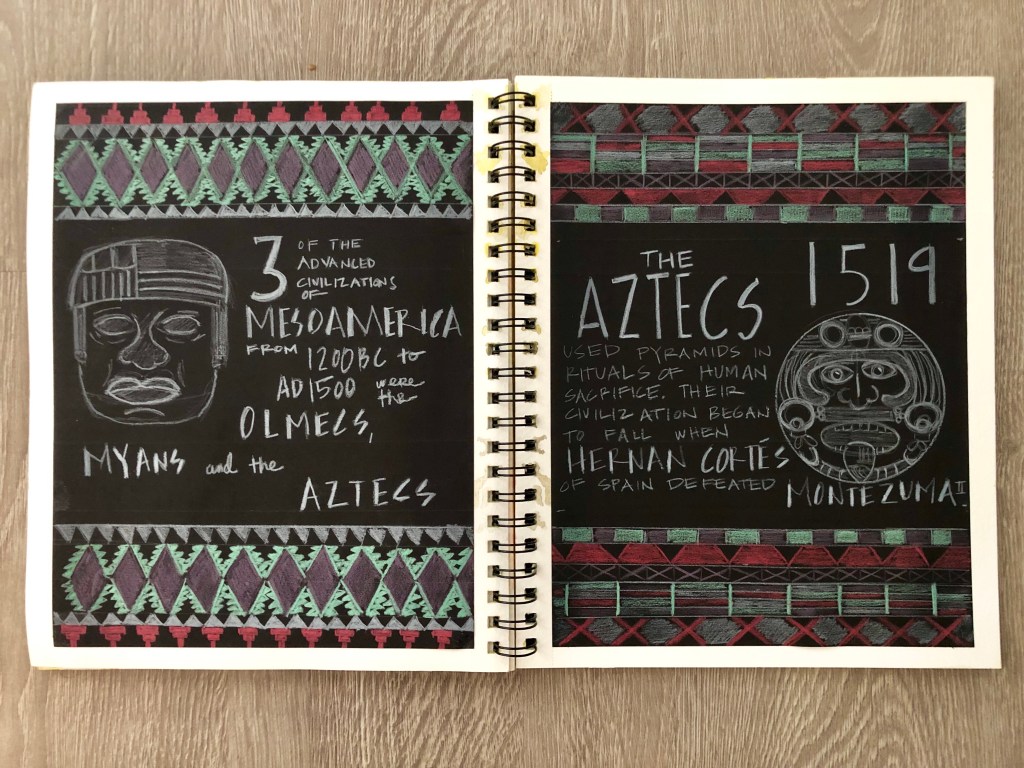 3 OF THE
ADVANCED
CIVILIZATIONS
OF
MESOAMERICA
FROM 1200BC to
AD1500 were
the
OLMECS,
MYANS and the
AZTECS
THE
AZTECS
1519
USED PYRAMIDS IN
RITUALS OF HUMAN
SACRIFICE. THEIR
CIVILIZATION BEGAN
TO FALL WHEN
HERNAN CORTÉS
OF SPAIN DEFEATED
MONTEZUMA II.